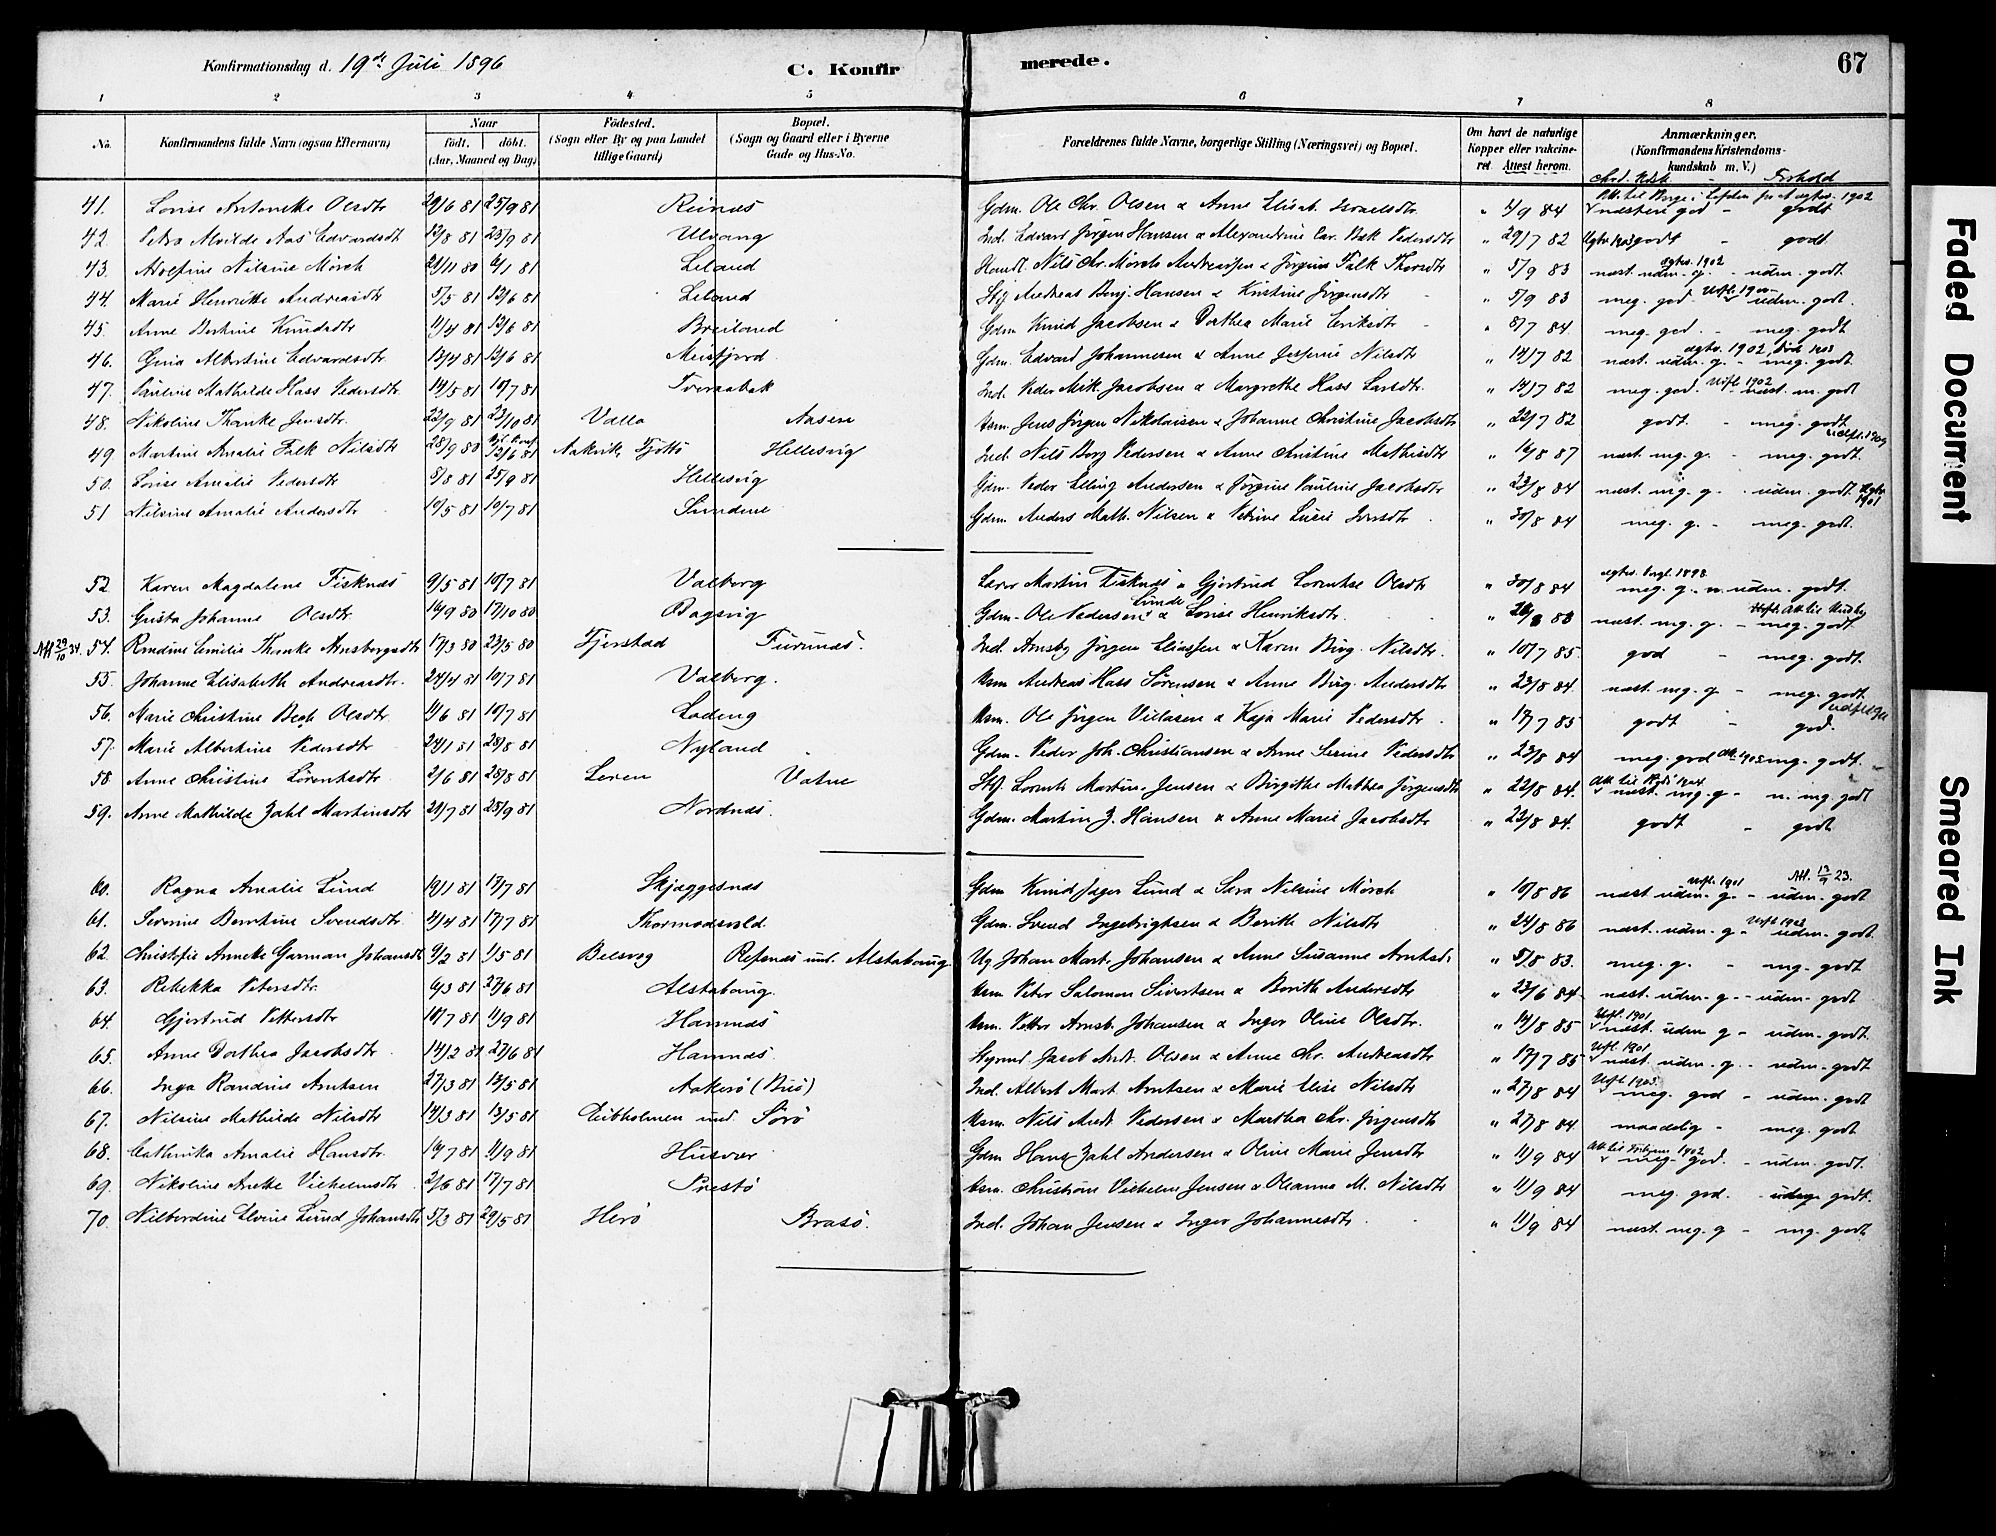 Konfirmationsdag d. 19de Juli 1896
C. Konfirmerede.
67
1 2 3 4 5 6 7 8
No.
Konfirmandens fulde Navn (ogsaa Efternavn)
Naar
födt. döbt.
(Aar, Maaned og Dag)
Födested.
(Sogn eller By og paa Landet tillige Gaard)
Bopæl.
(Sogn og Gaard eller i Byerne Gade og Hus-No.
Forældrenes fulde Navne, borgerlige Stilling (Næringsvei) og Bopæl.
Om havt de naturlige Kopper eller vakcineret. Attest herom.
Anmærkninger.
(Konfirmandens Kristendomskundskab m. V.)
Forhold
41. Lovise Antonette Olsdtr 29/6 81 25/9 81 Reinæs Gdm. Ole Chr. Olsen & Anne Elisab. Israelsdtr. " 4/9 84 næsten god - godt
42. Petra Alvilde Aas Edvardsdt 12/8 81 25/9 81 Ulvang Ind. Edvard Jörgen Hansen & Alexandrine Car. Bæk Pedersdtr " 29/7 82 godt - godt.
43. Adolfine Nilsine Mörch 21/11 80 6/1 81 Leland Handl. Nils Chr. Mörch Andreassen & Jörgine Falk Thorsdtr " 5/9 83 næst. udm. g. - udm. godt
44. Marie Henrikke Andreasdtr 5/5 81 12/6 81 Leland Andreas Benj. Hansen & Kristine Jörgensdtr " 5/9 83 meg. god - udm. godt.
45. Anne Bertine Knudsdtr 11/4 81 12/6 81 Breiland Gdm. Knud Jacobsen & Dorthea Marie Eriksdtr " 8/7 84 meg. god. - meg. godt
46. Gina Albertine Edvardsdtr. 13/4 81 12/6 81 Meisfjord Gdm. Edvard Johannesen & Anne Jesperine Nilsdtr " 14/7 82 næst. udm. g. - meg. godt.
47. Pauline Mathilde Hass Pedersdtr 14/5 81 10/7 81 Tveraabak Ind. Peder Mik. Jacobsen & Margrethe Hass Larsdtr. " 14/7 82 meg. god. - næst. m. godt
48. Nikoline Thanke Jensdtr. 22/9 81 23/10 81 Valla Aasen Jens Jörgen Nikolaisen & Johanne Christine Jacobsdtr " 22/7 82 godt. - meg. godt
49 Martine Amalie Falk Nilsdtr 28/9 80 12/6 81 Tjöttö Hellesvig Ind. Nils Borg Pedersen & Anne Christine Mathisdtr " 16/8 87 næst. mg. g. - meg. godt.
50. Lovise Amalie Pedersdtr 8/8 81 25/9 81 Hellesvig Gdm. Peder Elling Andersen & Jörgine Pauline Jacobsdtr " 23/8 84 næst. mg. g - udm. godt 1901
51 Nilsine Amalie Andersdtr 10/5 81 10/7 81 Sundene Gdm. Anders Math. Nilsen & Petrine Lucie " 30/8 84 meg. g. - meg. godt.
52 Karen Magdalene Fisknæs 9/5 81 10/7 81 Valberg Lærer Martin Fisknæs & Gjertrud Lorentse Olsdtr " 30/8 84 meg. g. - udm. godt.
53. Johanne Olsdtr 16/9 80 17/10 80 Bagsvig Gdm. Ole Pedersen Lunde & Lovise Henriksdtr. " 26/8 88 næst. mg. g. - meg. godt.
54. Rondine Emilie Thanke Arnsbergsdtr 17/3 80 23/5 80 Tjerstad Furunæs. Ind. Arnsb. Jörgen Eliassen & Karen Birg. Nilsdtr. " 10/7 85. god - meg. godt.
55. Johanne Elisabeth Andreasdtr. 24/4 81 10/7 81 Valberg. Andreas Hass Sörensen & Anne Birg. Andersdtr " 23/8 84. næst. mg. g - meg. godt
56. Marie Christine Bech Olsdtr. 11/6 81 10/7 81 Ladeng Ole Jörgen & Kaja Marie Pedersdtr. " 17/7 85 godt - god.
57. Marie Albertine Pedersdtr 24/1 81 28/8 81 Nyland Gdm. Peder Joh. Christiansen & Anne Serine Pedersdtr " 23/8 84 meg. god - mg. godt.
58. Anne Christine Lorentsdtr 2/6 81 28/8 81 Leren Vatne Lorents Martin Jensen & Birgithe Mathea Jörgensdtr " 22/8 84. næst. mg. g - n. mg. godt
59. Anne Mathilde Zahl Martinsdtr 20/7 81 25/9 81 Nordnæs. Gdm. Martin Z. Hansen & Anne Marie Jacobsdtr " 23/8 84. godt - godt.
60. Ragna Amalie Lund 19/1 81 17/7 81 Skjæggesnæs Gdm Knud Jæger Lund & Sara Nilsine Mörch " 10/8 86 næst udm. g. - udm. godt
61. Severine Berntine Svendsdtr 4/4 81 17/7 81 Thormodsvold. Gdm. Svend Ingebrigtsen & Berith Nilsdtr " 24/8 86 næst. udm. g - udm. godt
62. Christofie Annette Garman Johansdt 9/2 81 1/5 81 Belsvog Refsnæs und. Alstahoug Ug Johan Mart. Johansen & Anne Susanne Arntsd. " 5/8 83. meg. g. - mg. godt
63. Rebekka Petersdtr. 6/3 81 27/6 81 Alstahoug. Peter Salomon Sivertsen & Berith Andersdtr " 23/6 84. næst. udm. g - udm. godt
64. Gjertrud Pettersdtr 10/7 81 11/9 81 Hamnæs Petter Arnt Johansen & Inger Oline Olsdtr. " 14/8 85 næst. udm g - udm. godt.
65. Anne Dorthea Jacobsdtr 14/2 81 27/6 81 Hamnæs. Jacob Andr. Olsen & Anne Chr. Andreasdtr " 17/7 85 næst udm. g. - udm. godt
66. Inga Randine Arntsen 27/3 81 13/5 81 Aakerö Ind. Albert Mart. Arntsen & Marie Elise Nilsdtr " 27/8 84 meg. god - udm. godt
67. Nilsine Mathilde Nilsdtr 14/3 81 13/5 81 und. Sörö Nils Andr. Pedersen & Martha Chr. Jörgensdtr " 27/8 84. maadelig - meg. godt
68. Cathrika Amalie Hansdtr. 19/7 81 11/9 81 Husvær Gdm Hans Zahl Andersen & Oline Marie Jensdtr " 11/9 84 meg god. - udm. godt.
69. Nikoline Anette Vilhelmsdtr 2/6 81 17/7 81 Prestö Christian Vilhelm Jensen & Oleanna M. Nilsdtr " 11/9 84 meg. god. - godt.
70. Nilberdine Elvine Lund Johansdtr 5/3 81 29/5 81 Herö Brasö. Ind. Johan Jensen & Inger Johannesdtr " 11/9 84 næst. meg. g - mg. godt
Faded Document
Smeared Ink